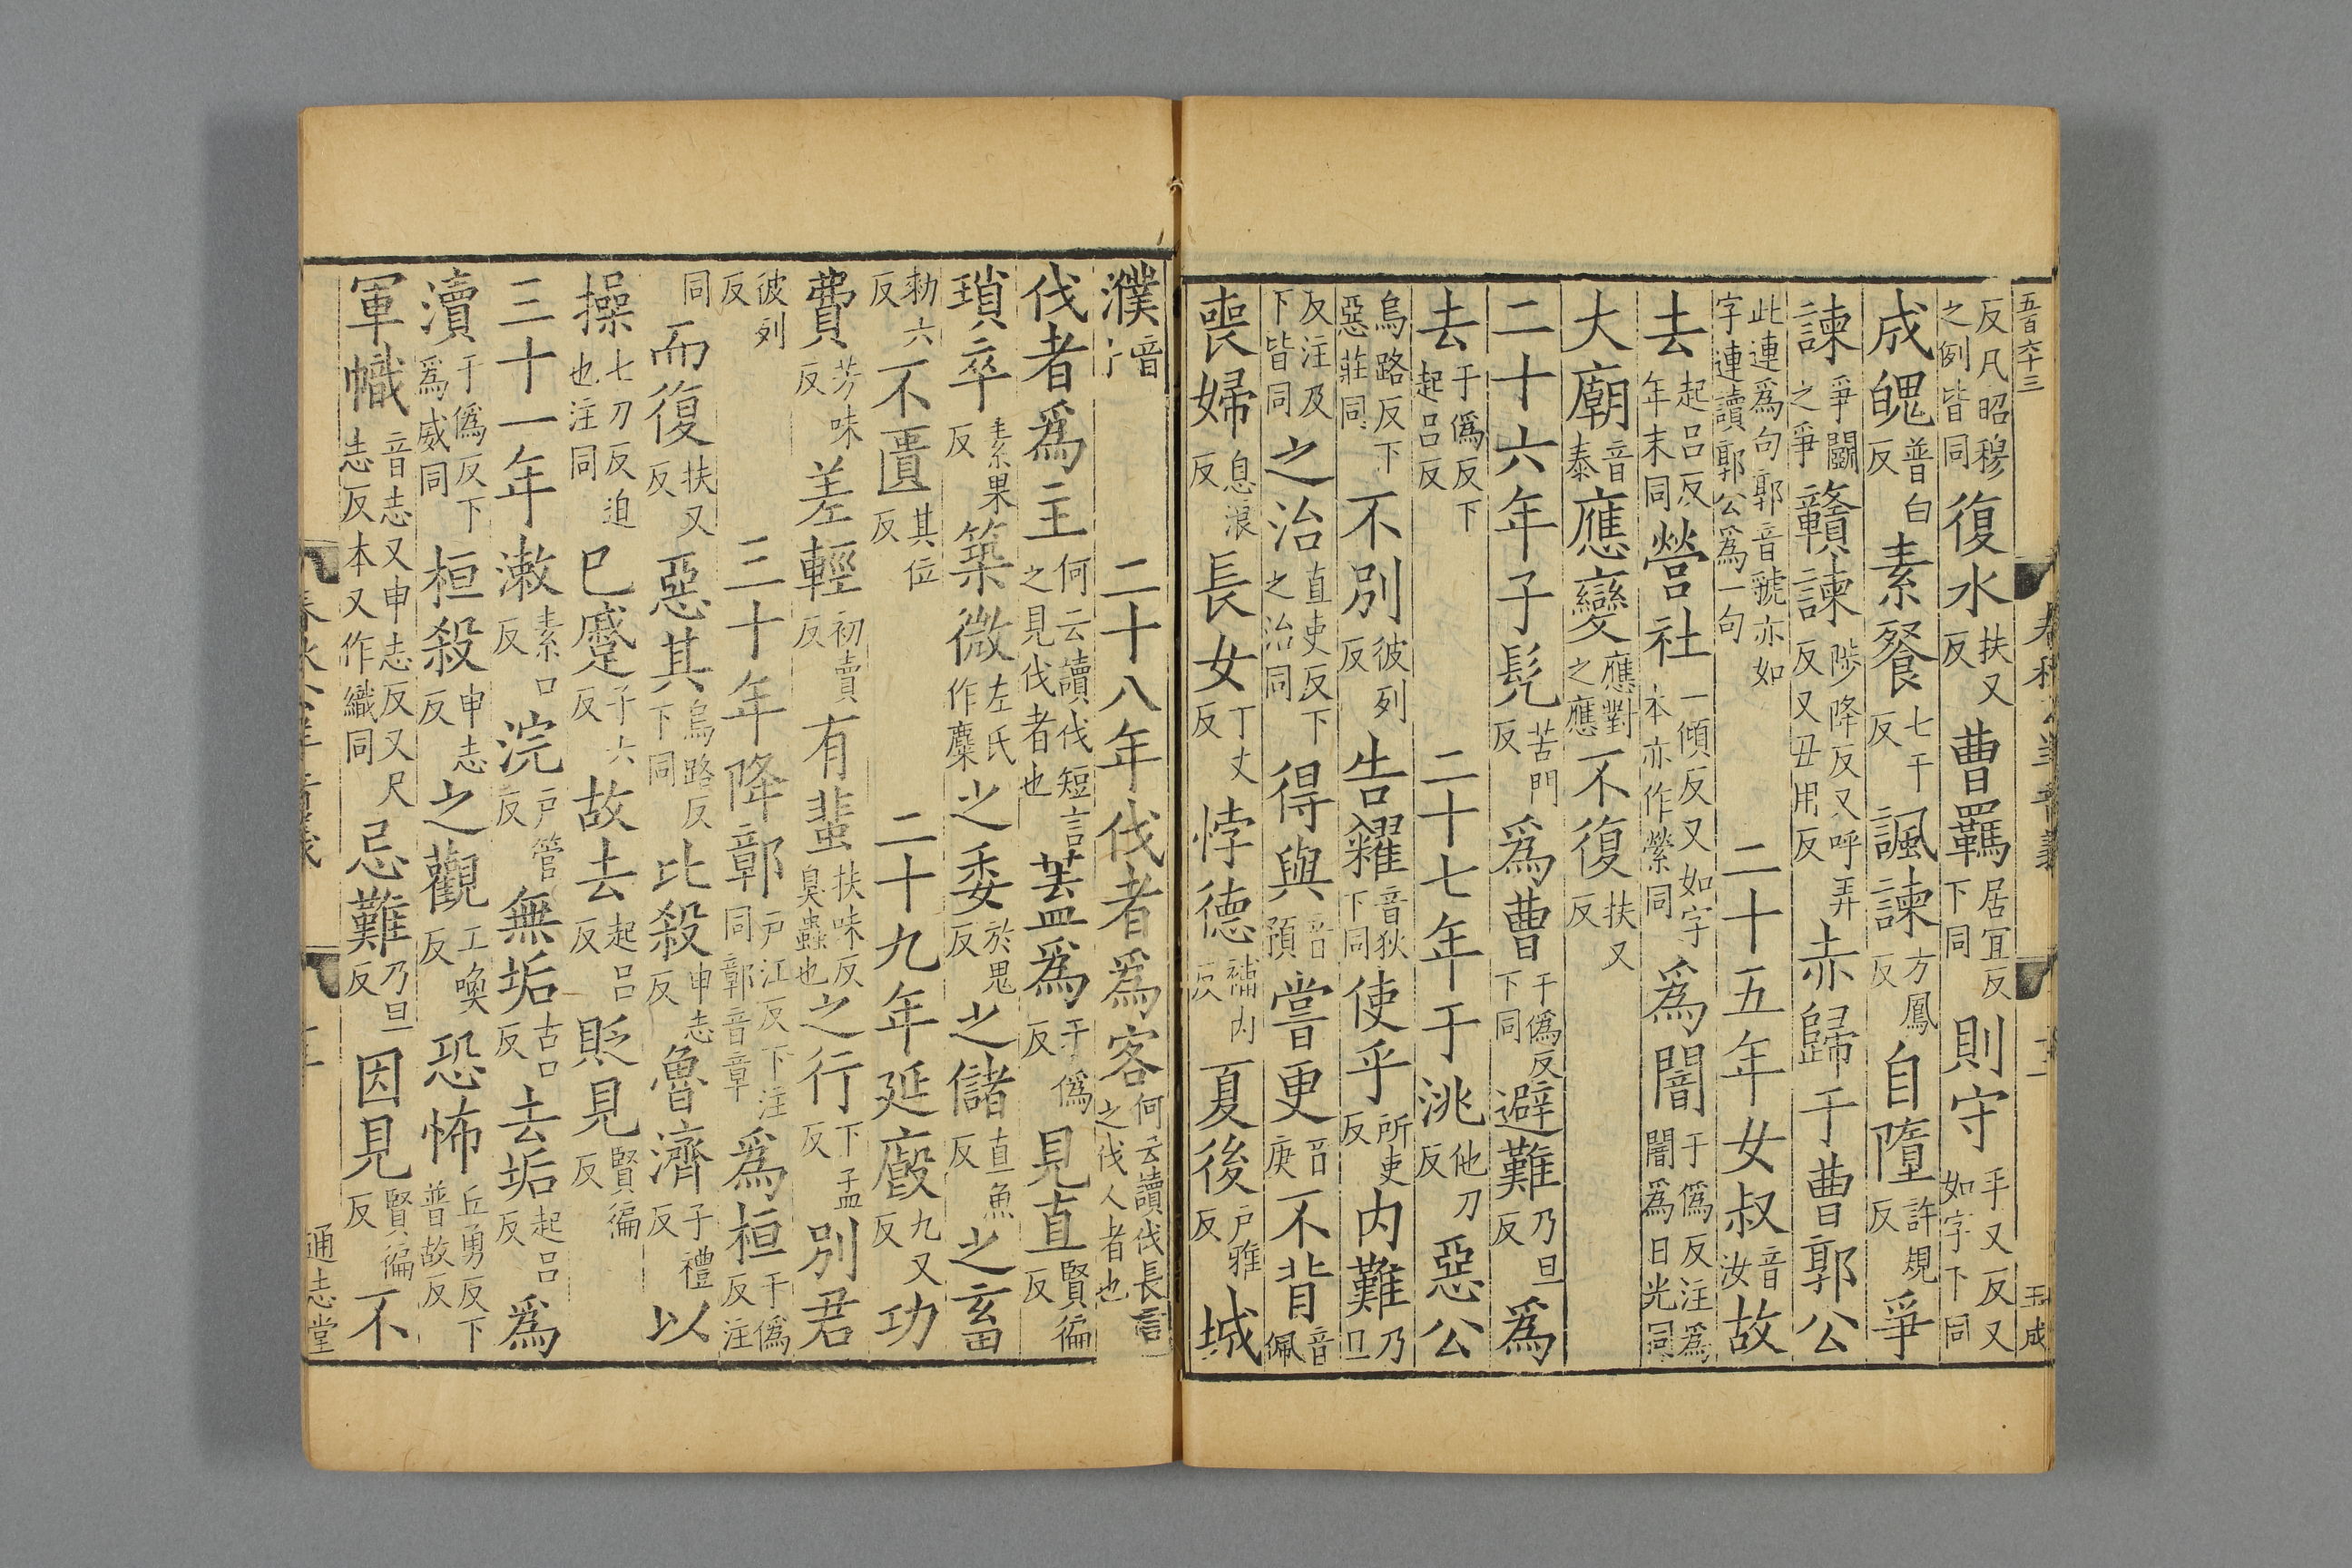 五百六十三 春秋公羊音義 十一 玉成
反凡昭穆之例皆同復水扶又反曹羈居宜反下同則守手又反又如字下同
成魄普白反素餐七干反諷諫方鳳反自隳許規反爭
諫爭鬬之爭贛諫陟降反又呼弄反又丑用反赤歸于曹郭公
此連爲句郭音虢亦如字連讀郭公爲一句二十五年女叔音汝故
去起呂反年末同營社一傾反又如字本亦作縈同爲闇于僞反注爲闇爲日光同
大廟音泰應變應對之應不復扶又反
二十六年子髡苦門反爲曹于僞反下同避難乃旦反爲
去于僞反下起呂反二十七年于洮他刀反惡公
烏路反下惡莊同不別彼列反告糴音狄下同使乎所吏反内難乃旦
反注及下皆同之治直吏反下之治同得與音預嘗更音庚不背音佩
喪婦息浪反長女丁丈反悖德補内反夏後户雅反城
濮音卜二十八年伐者爲客何云讀伐長言之伐人者也
伐者爲主何云讀伐短言之見伐者也盖爲于僞反見直賢徧反
瑣卒素果反築微左氏作麋之委於鬼反之儲直魚反之畜
勑六反不匱其位反二十九年延廏九又反功
費芳味反差輕初賣反有蜚扶味反臭蟲也之行下孟反別君
彼列反三十年降鄣户江反下注同鄣音章爲桓于僞反注
同而復扶又反惡其烏路反下同比殺申志反魯濟子禮反以
操七刀反迫也注同已蹙子六反故去起呂反貶見賢徧反
三十一年漱素口反浣户管反無垢古口反去垢起呂反爲
瀆于僞反下爲威同桓殺申志反之觀工喚反恐怖丘勇反下普故反
軍幟音志又申志反又尺志反本又作織同忌難乃旦反因見賢徧反不
春秋公羊音義 通志堂